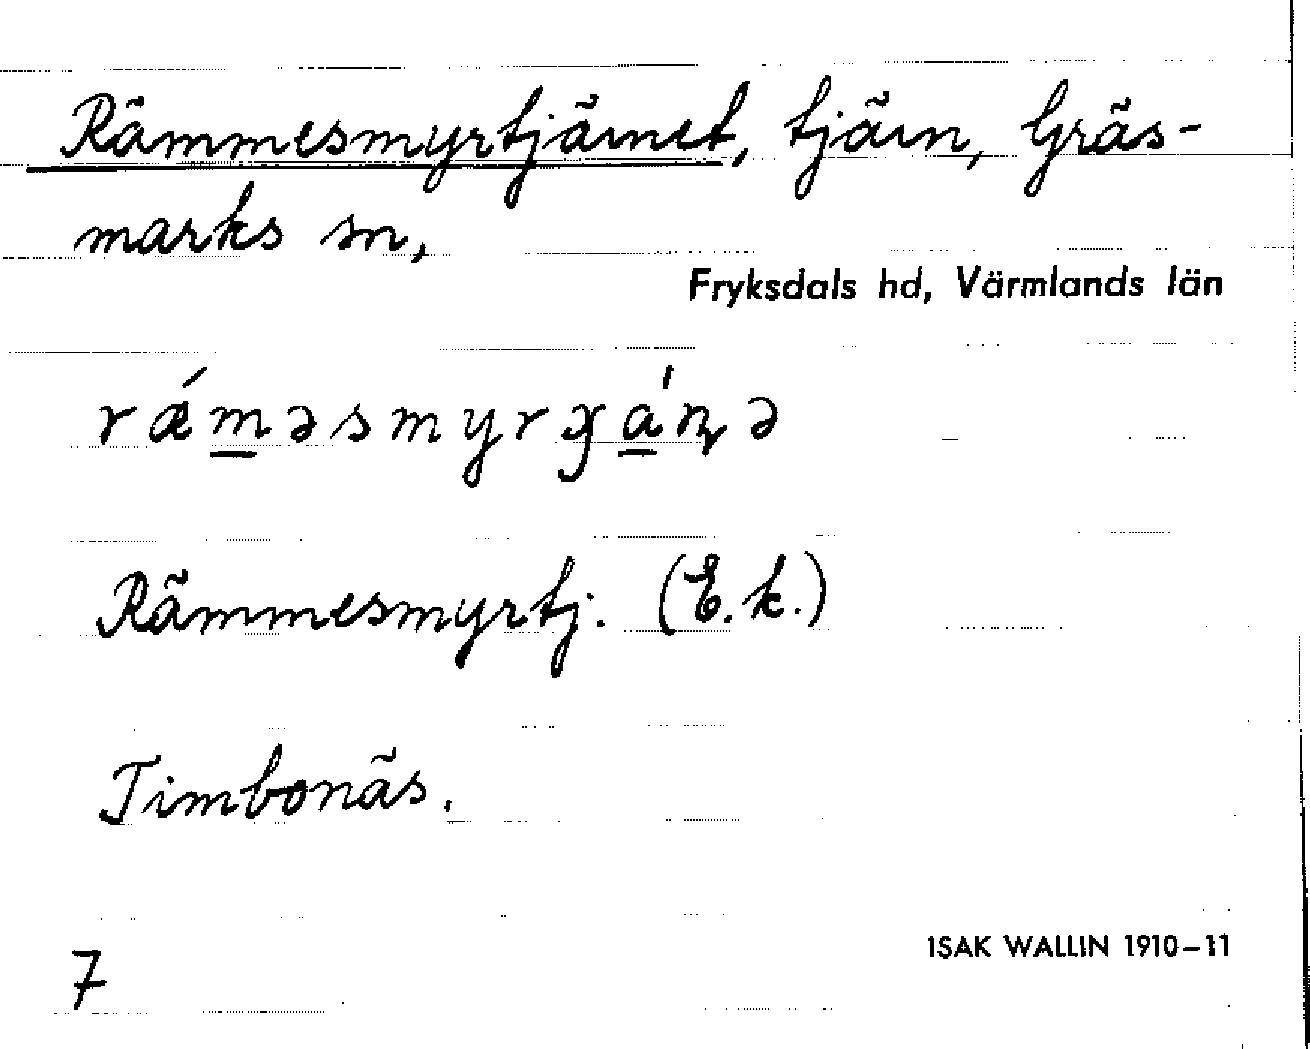 Rämmesmyrtjärnet, tjärn, Gräs-
marks sn,
Fryksdals hd, Värmlands län
rǽm̲əsmyrɟá̲ɳə
Rämmesmyrtj. (E.k.)
Timbonäs.
7
ISAK WALLIN 1910–11